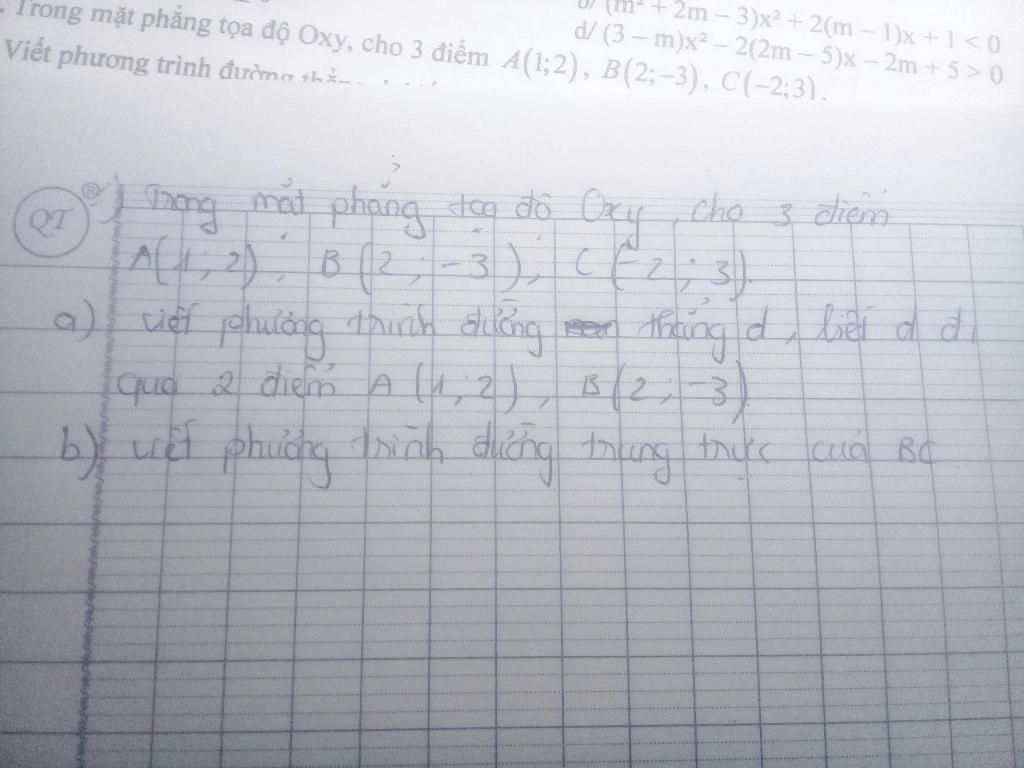 b/ (m² + 2m − 3)x² + 2(m − 1)x + 1 < 0
d/ (3 − m)x² − 2(2m − 5)x − 2m + 5 > 0
. Trong mặt phẳng tọa độ Oxy, cho 3 điểm A(1;2), B(2;−3), C(−2;3).
Viết phương trình đường thẳng
QT ® Trong mặt phẳng tọa độ Oxy, cho 3 điểm
A(1;2), B(2;−3), C(−2;3).
a) viết phương trình đường thẳng d, biết d đi
qua 2 điểm A(1;2), B(2;−3).
b) viết phương trình đường trung trực của BC